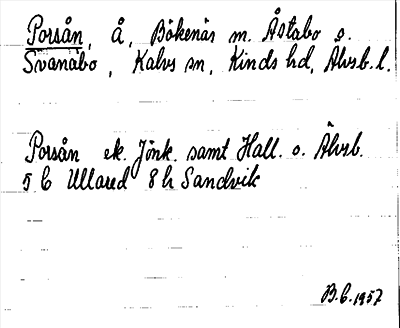 Porsån, å, Bökenäs m. Åstabo o.
Svanabo, Kalvs sn, Kinds hd, Älvsb. l.
Porsån ek. Jönk. samt Hall. o. Älvsb.
5 C Ullared 8 h Sandvik
B.C. 1957